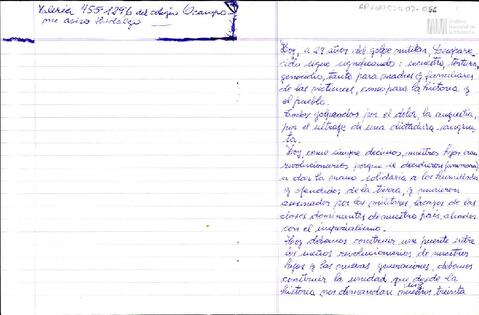 Valeria 455-1296 del colegio Ocampo
me avisó Hidalgo
Archivo
Nacional de
la Memoria
Hoy, a 29 años del golpe militar, desapare-
cido sigue significando: secuestro, tortura,
genocidio, tanto para madres y familiares
de las víctimas, como para la historia y
el pueblo.
Todos golpeados por el dolor, la angustia,
por el ultraje de una dictadura sangrien-
ta.
Hoy, como siempre decimos, nuestros hijos eran
revolucionarios porque se decidieron
a dar la mano solidaria a los humillados
y ofendidos de la tierra, y murieron
asesinados por los militares, lacayos de las
clases dominantes de nuestro país, aliados
con el imperialismo.
Hoy debemos construir un puente entre
los sueños revolucionarios de nuestros
hijos y las nuevas generaciones, debemos
construir la unidad que desde la
historia nos demandan nuestros treinta